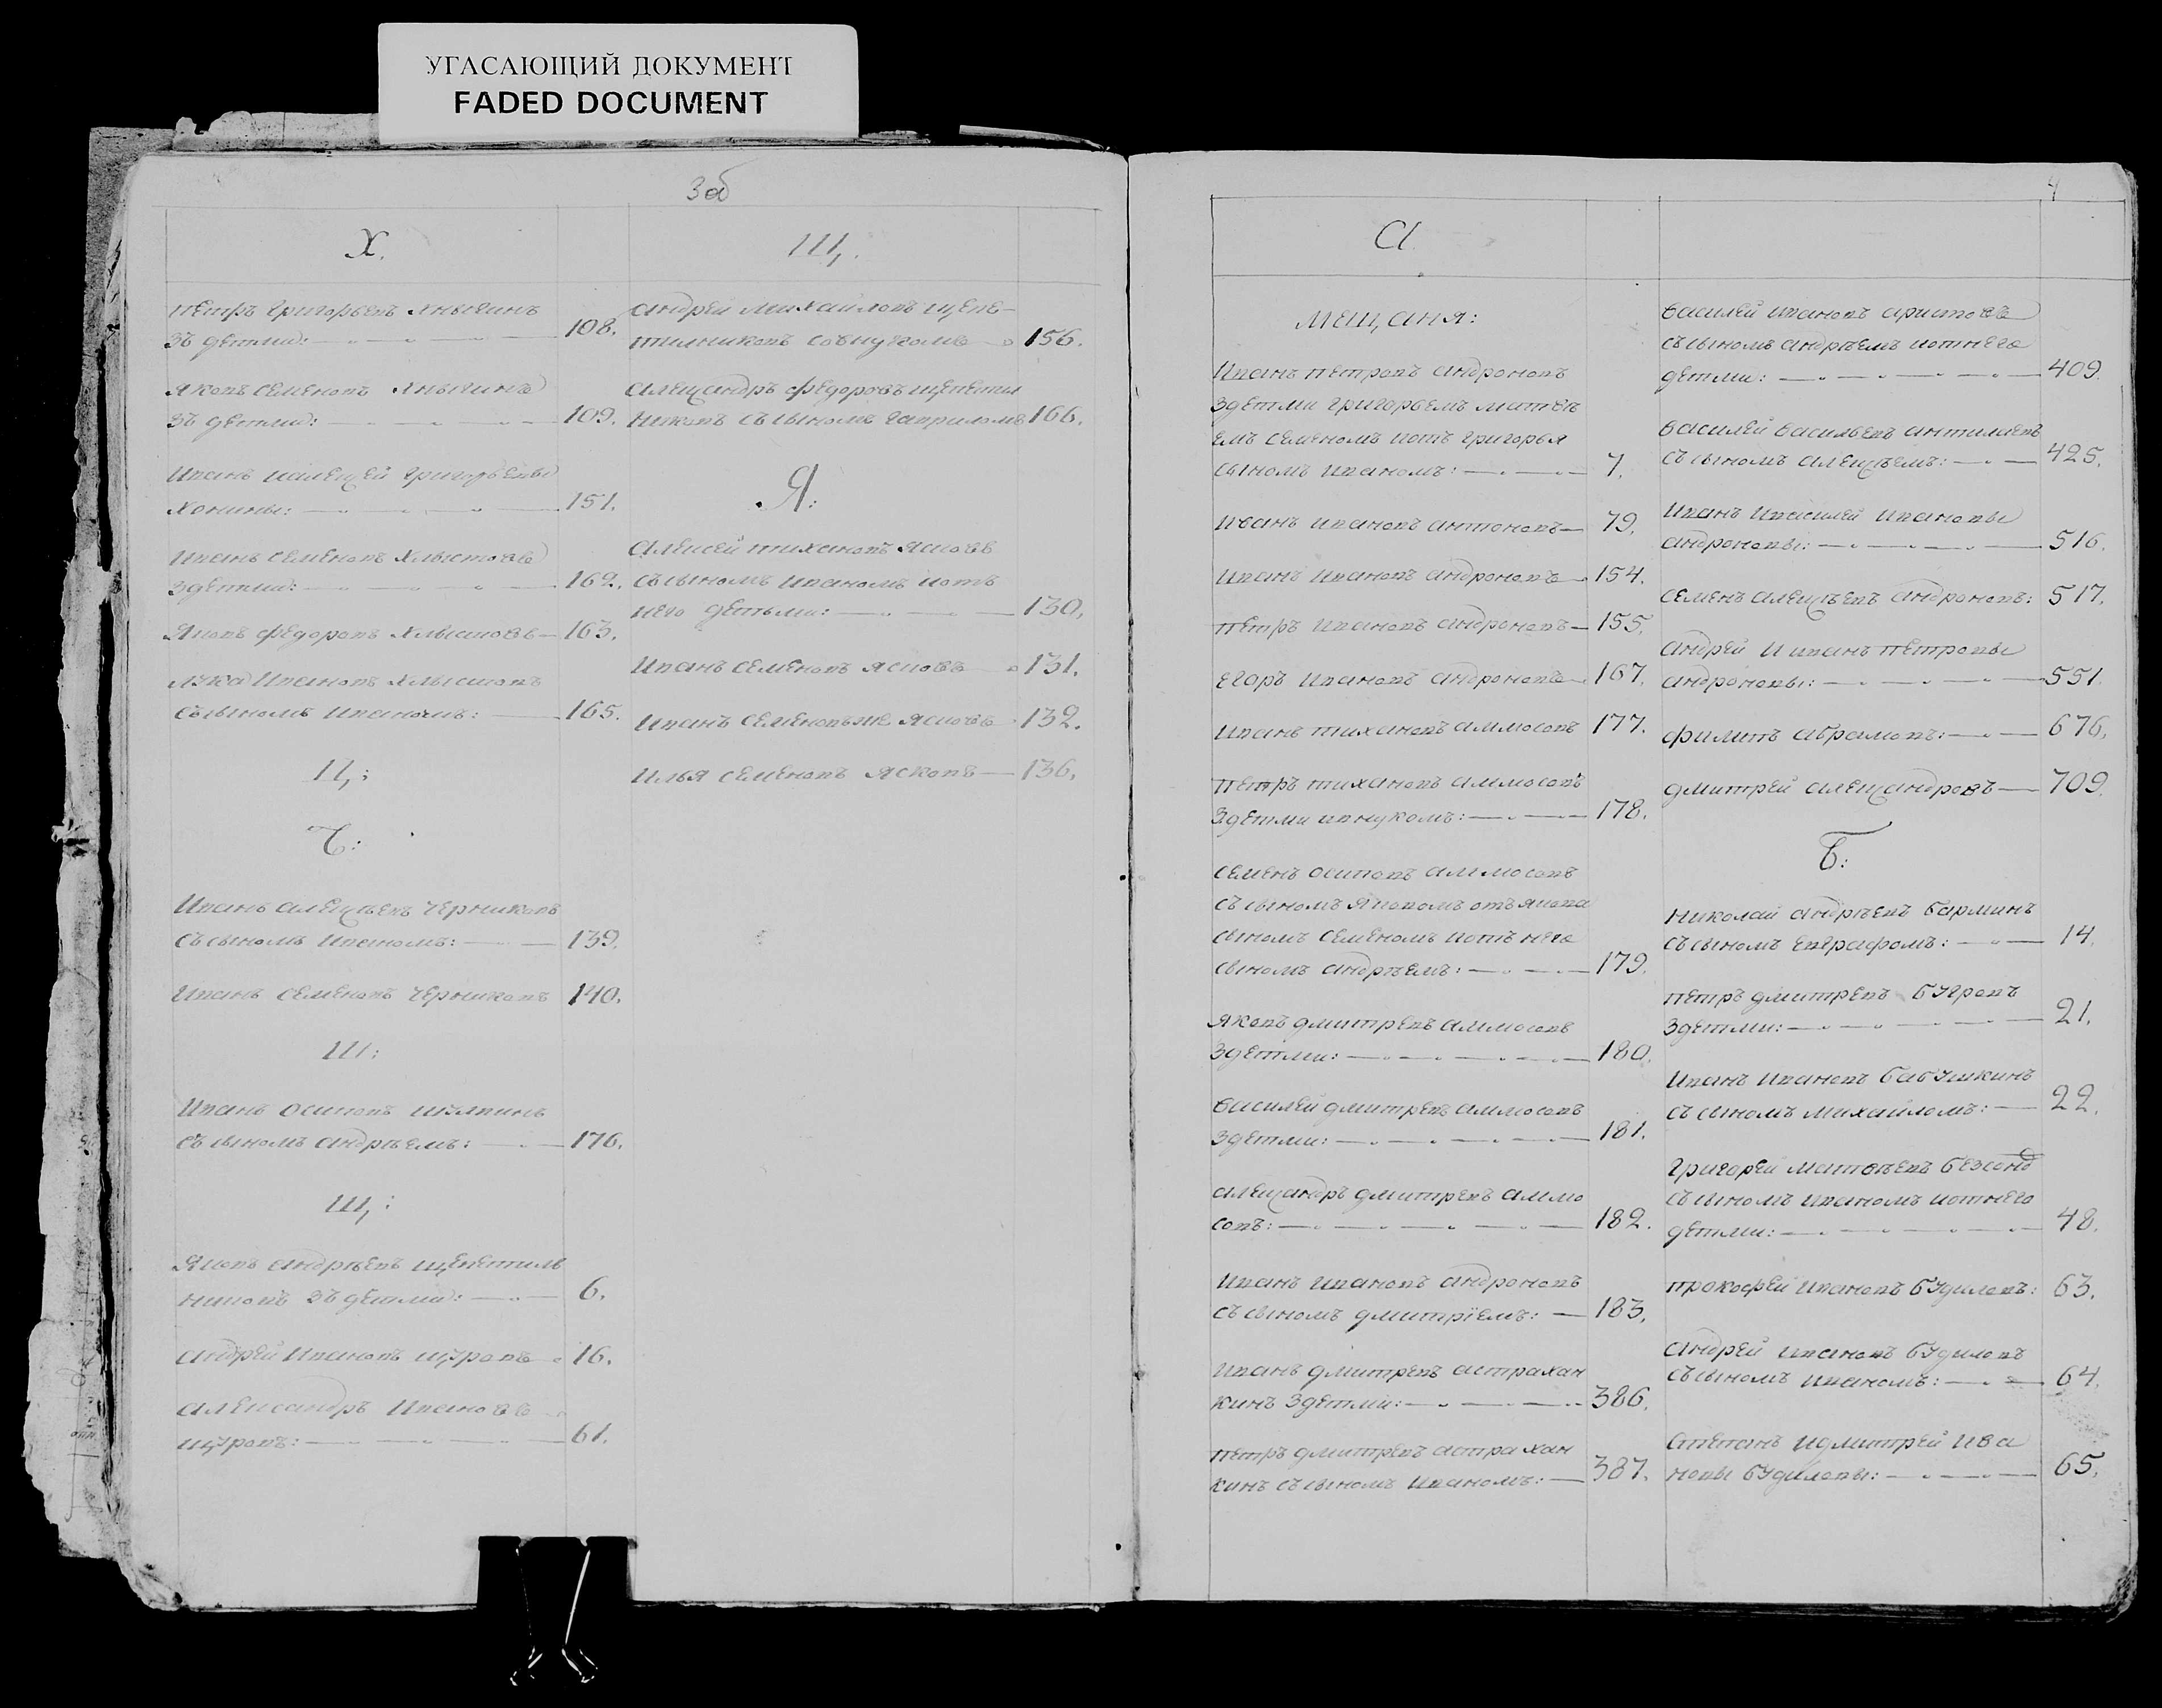 УГАСАЮЩИЙ ДОКУМЕНТ
FADED DOCUMENT
3 об
Х.
Петръ Григорьевъ Хныкинъ
зъ детми: 108.
Яковъ Семеновъ Хныкинъ
зъ детми: 109.
Иванъ иалексей Григорьевы
Хонины: 151.
Иванъ Семеновъ Хлыстовъ
здетми: 162.
Яковъ Федоровъ Хлыстовъ 163.
Лука Ивановъ Хлыстовъ
Съсыномъ Иваномъ: 165.
Ц:
Ч:
Иванъ Алексѣевъ Черниковъ
Съ сыномъ Иваномъ: 139.
Иванъ Семеновъ Черниковъ 140.
Ш:
Иванъ Осиповъ
Съ сыномъ Андрѣемъ: 176.
Щ:
Яковъ Андрѣевъ Щепетиль
никовъ зъ детми: 6.
Андрей Ивановъ Щуровъ 16.
Александръ Ивановъ
Щуровъ: 61.
Щ.
Андрей Михайловъ Щепе-
тилниковъ совнукомъ 156.
Александръ Федоровъ Щепетил
никовъ съ сыномъ Гавриломъ 166.
Я:
Алексей Тихановъ Ясковъ
Съсыномъ Иваномъ иотъ
него детьми: 130.
Иванъ Семеновъ Ясковъ 131.
Иванъ Семеновъже Ясковъ 132.
Илья Семеновъ Ясковъ 136.
4
А
Мещаня:
Иванъ Петровъ Андроновъ
здетми Григорьемъ Матве
емъ Семеномъ иотъ Григорья
сыномъ Иваномъ: 7.
Иванъ Ивановъ Антоновъ 79.
Иванъ Ивановъ Андроновъ 154.
Петръ Ивановъ Андроновъ 155.
Егоръ Ивановъ Андроновъ 167.
Иванъ Тихановъ Аммосовъ 177.
Петръ Тихановъ Аммосовъ
здетми ивнукомъ: 178.
Семенъ Осиповъ Аммосовъ
Съ сыномъ Яковомъ отъ Якова
сыномъ Семеномъ иотъ него
сыномъ Андрѣемъ: 179.
Яковъ Дмитревъ Аммосовъ
Здетми: 180.
Василей Дмитревъ Аммосовъ
Здетми: 181.
Александръ Дмитревъ Аммо
совъ: 182.
Иванъ Ивановъ Андроновъ
Съ сыномъ Дмитрiемъ: 183.
Иванъ Дмитревъ Астрахан
кинъ Здетми: 386.
Петръ Дмитревъ Астрахан
кинъ Съ сыномъ Иваномъ: 387.
Василей Ивановъ Аристовъ
Съсыномъ Андрѣемъ иотнего
детми: 409.
Василей Васильевъ
Съ сыномъ Алексѣемъ: 425.
Иванъ Ивасилей Ивановы
Андроновы: 516.
Семенъ Алексѣевъ Андроновъ: 517.
Андрей И иванъ Петровы
Андроновы: 551.
Филипъ Абрамовъ: 676.
Дмитрей Александровъ 709.
Б:
Николай Андрѣевъ Барминъ
Съ сыномъ Евграфомъ: 14.
Петръ Дмитревъ Бугровъ
Здетми: 21.
Иванъ Ивановъ Бабушкинъ
Съ сыномъ Михайломъ: 22.
Григорей Матвѣевъ
Съ сыномъ Иваномъ иотнего
детми: 48.
Прокофей Ивановъ Будиловъ: 63.
Андрей Ивановъ Будиловъ
Съ сыномъ Иваномъ: 64.
Степанъ Идмитрей Ива
новы Будиловы: 65.